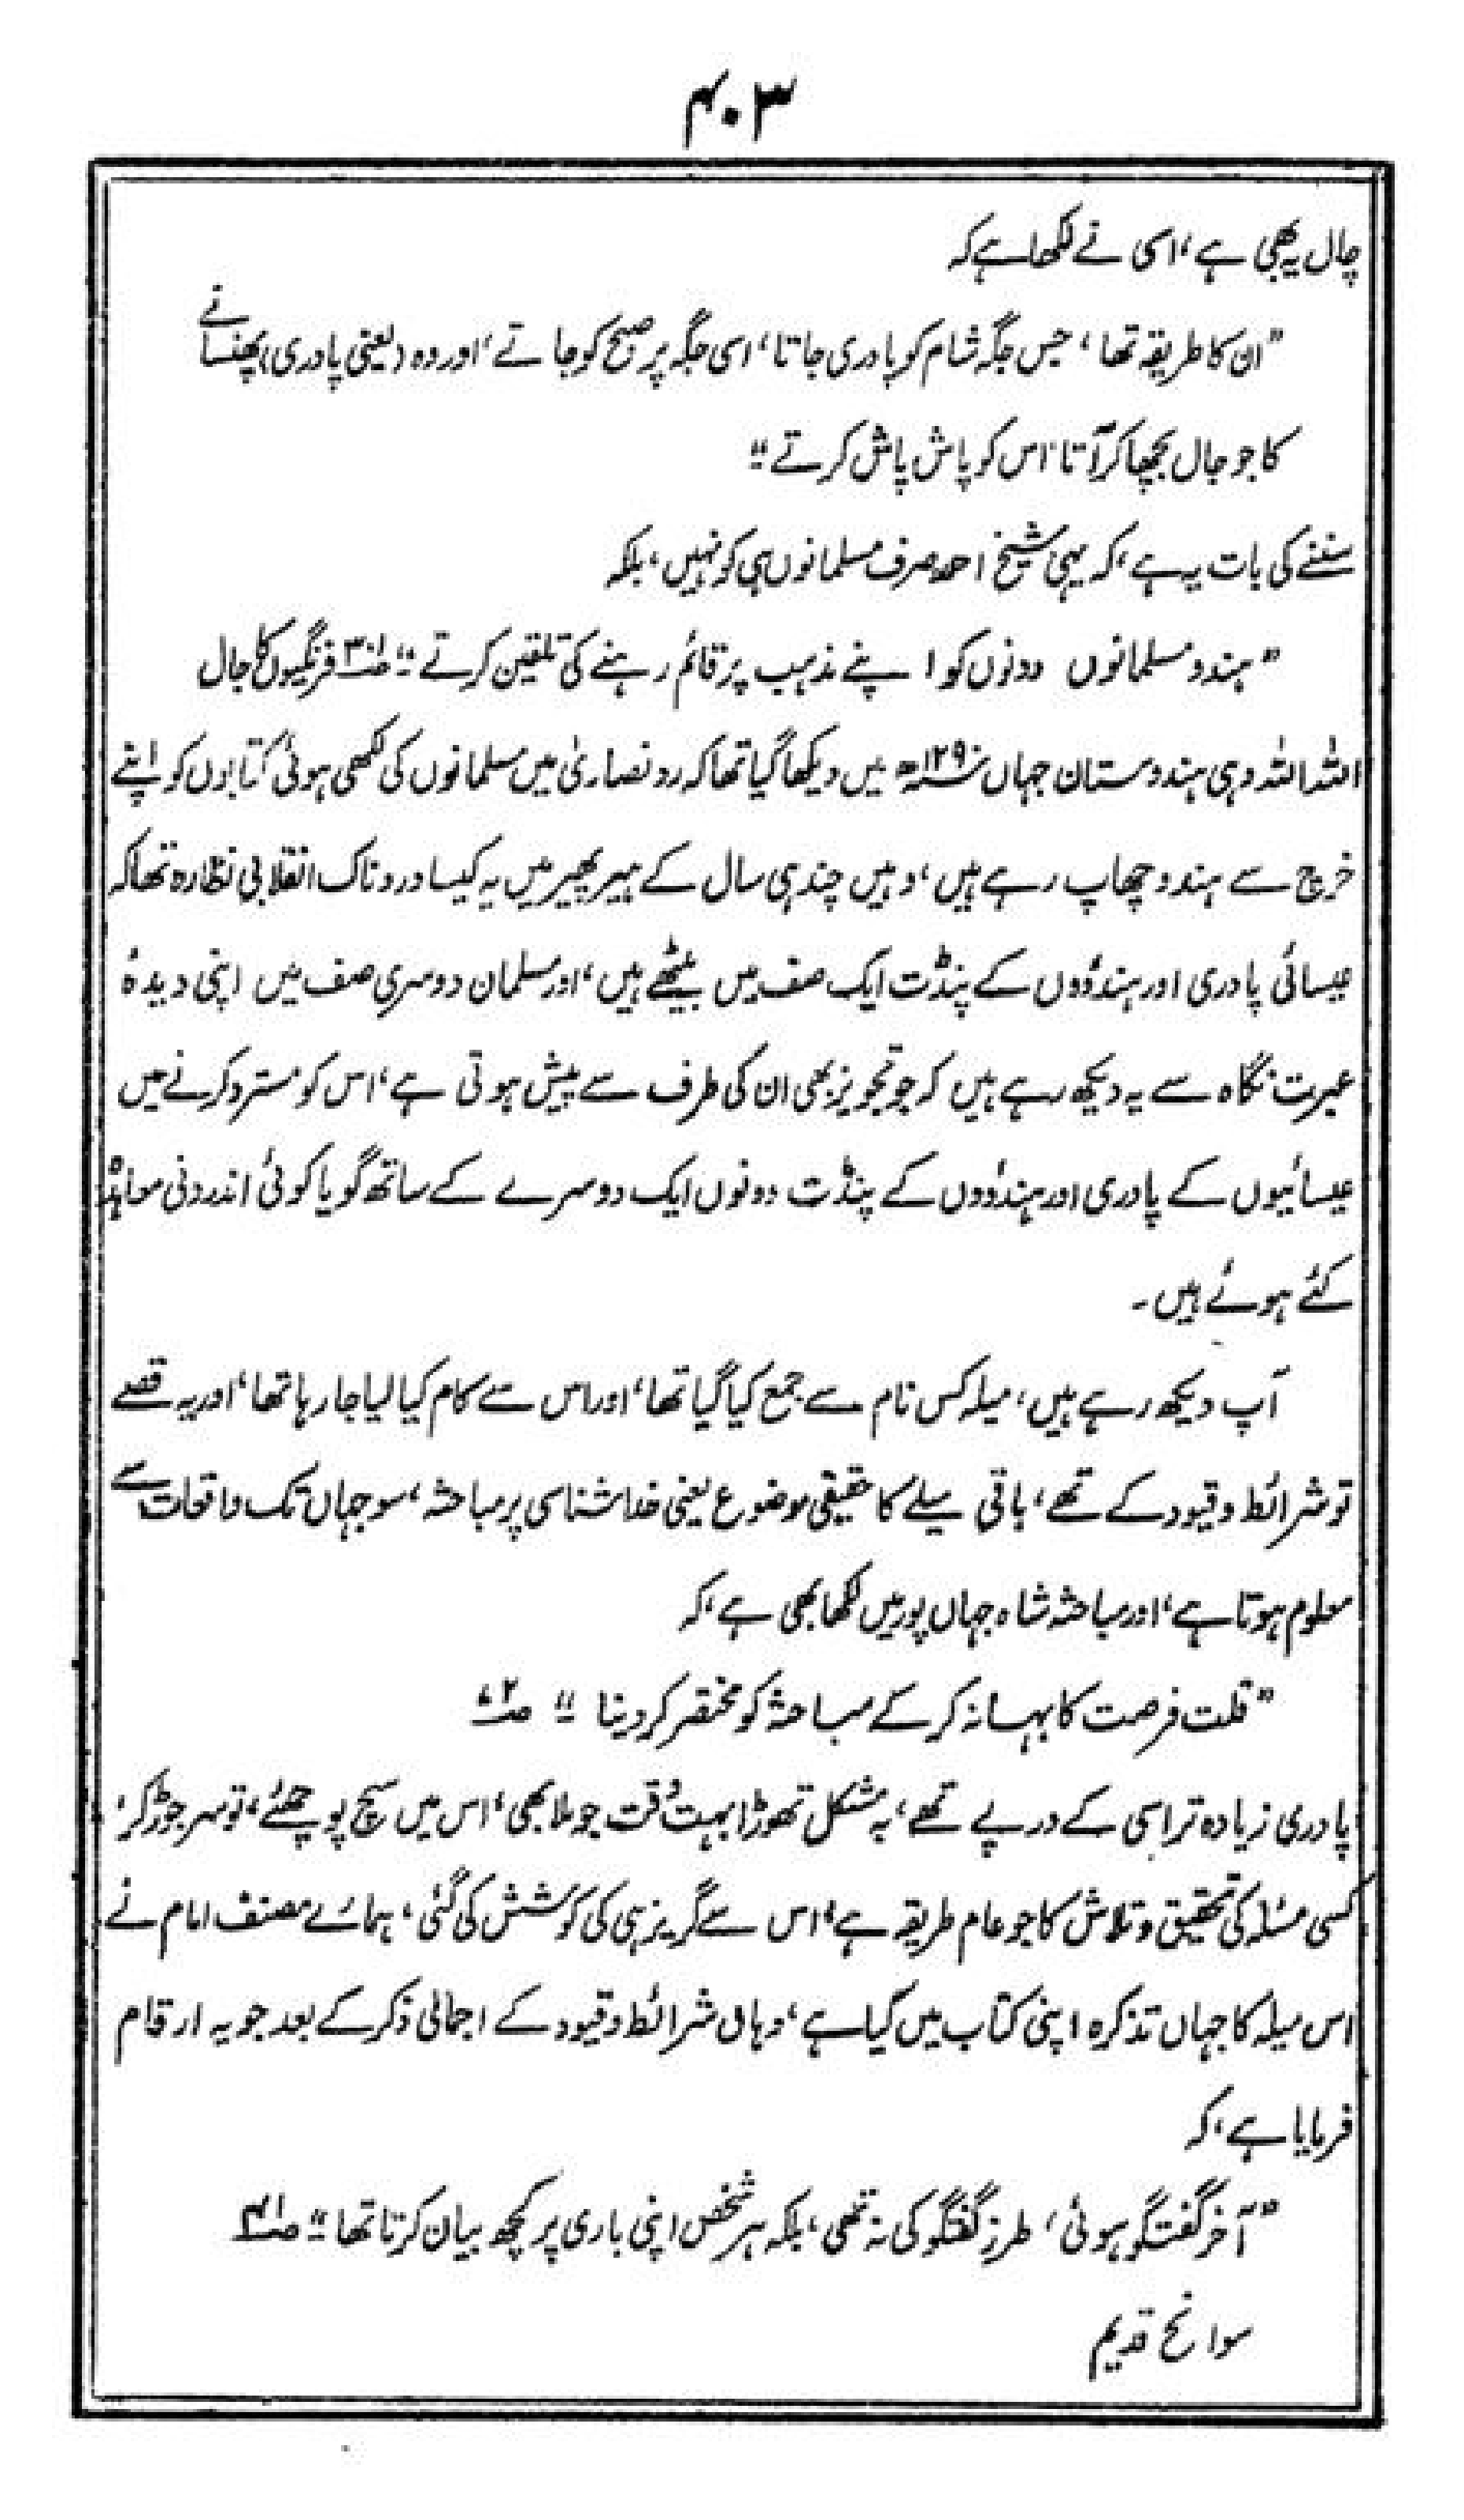 ۴۰۳
چال یہ بھی ہے، اسی نے لکھا ہے کہ
"ان کا طریقہ تھا، جس جگہ شام کو پادری جاتا، اسی جگہ پر صبح کو جاتے، اور وہ (یعنی پادری) پھنسانے
کا جو جال بچھا کر آتا اس کو پاش پاش کرتے"
سننے کی بات یہ ہے، کہ یہی شیخ احمد صرف مسلمانوں ہی کو نہیں، بلکہ
"ہندو مسلمانوں دونوں کو اپنے مذہب پر قائم رہنے کی تلقین کرتے" فرنگیوں کا جال
اللہ اللہ وہی ہندوستان جہاں ۱۲۹۰ھ میں دیکھا گیا تھا کہ رد نصاریٰ میں مسلمانوں کی لکھی ہوئی کتابوں کو اپنے
خرچ سے ہندو چھاپ رہے ہیں، وہیں چند ہی سال کے ہیر پھیر میں یہ کیسا دردناک انقلابی نظارہ تھا کہ
عیسائی پادری اور ہندوؤں کے پنڈت ایک صف میں بیٹھے ہیں، اور مسلمان دوسری صف میں اپنی دیدۂ
عبرت نگاہ سے یہ دیکھ رہے ہیں کہ جو تجویز بھی ان کی طرف سے پیش ہوتی ہے، اس کو مسترد کرنے میں
عیسائیوں کے پادری اور ہندوؤں کے پنڈت دونوں ایک دوسرے کے ساتھ گویا کوئی اندرونی معاہدہ
کئے ہوئے ہیں۔
آپ دیکھ رہے ہیں، میلہ کس نام سے جمع کیا گیا تھا، اور اس سے کام کیا لیا جا رہا تھا، اور یہ قصے
تو شرائط و قیود کے تھے، باقی میلے کا حقیقی موضوع یعنی خدا شناسی پر مباحثہ، سو جہاں تک واقعات سے
معلوم ہوتا ہے، اور مباحثہ شاہ جہاں پور میں لکھا بھی ہے، کہ
"قلت فرصت کا بہانہ کر کے مباحثہ کو مختصر کر دینا"
پادری زیادہ تر اسی کے درپے تھے، بہ مشکل تھوڑا بہت وقت جو ملا بھی، اس میں سچ پوچھئے، تو سر جوڑ کر،
کسی مسئلہ کی تحقیق و تلاش کا جو عام طریقہ ہے، اس سے گریز ہی کی کوشش کی گئی، ہمارے مصنف امام نے
اس میلہ کا جہاں تذکرہ اپنی کتاب میں کیا ہے، وہاں شرائط و قیود کے اجمالی ذکر کے بعد جو یہ ارقام
فرمایا ہے، کہ
"آخر گفتگو ہوئی، طرز گفتگو کی نہ تھی، بلکہ ہر شخص اپنی باری پر کچھ بیان کرتا تھا"
سوانح قدیم